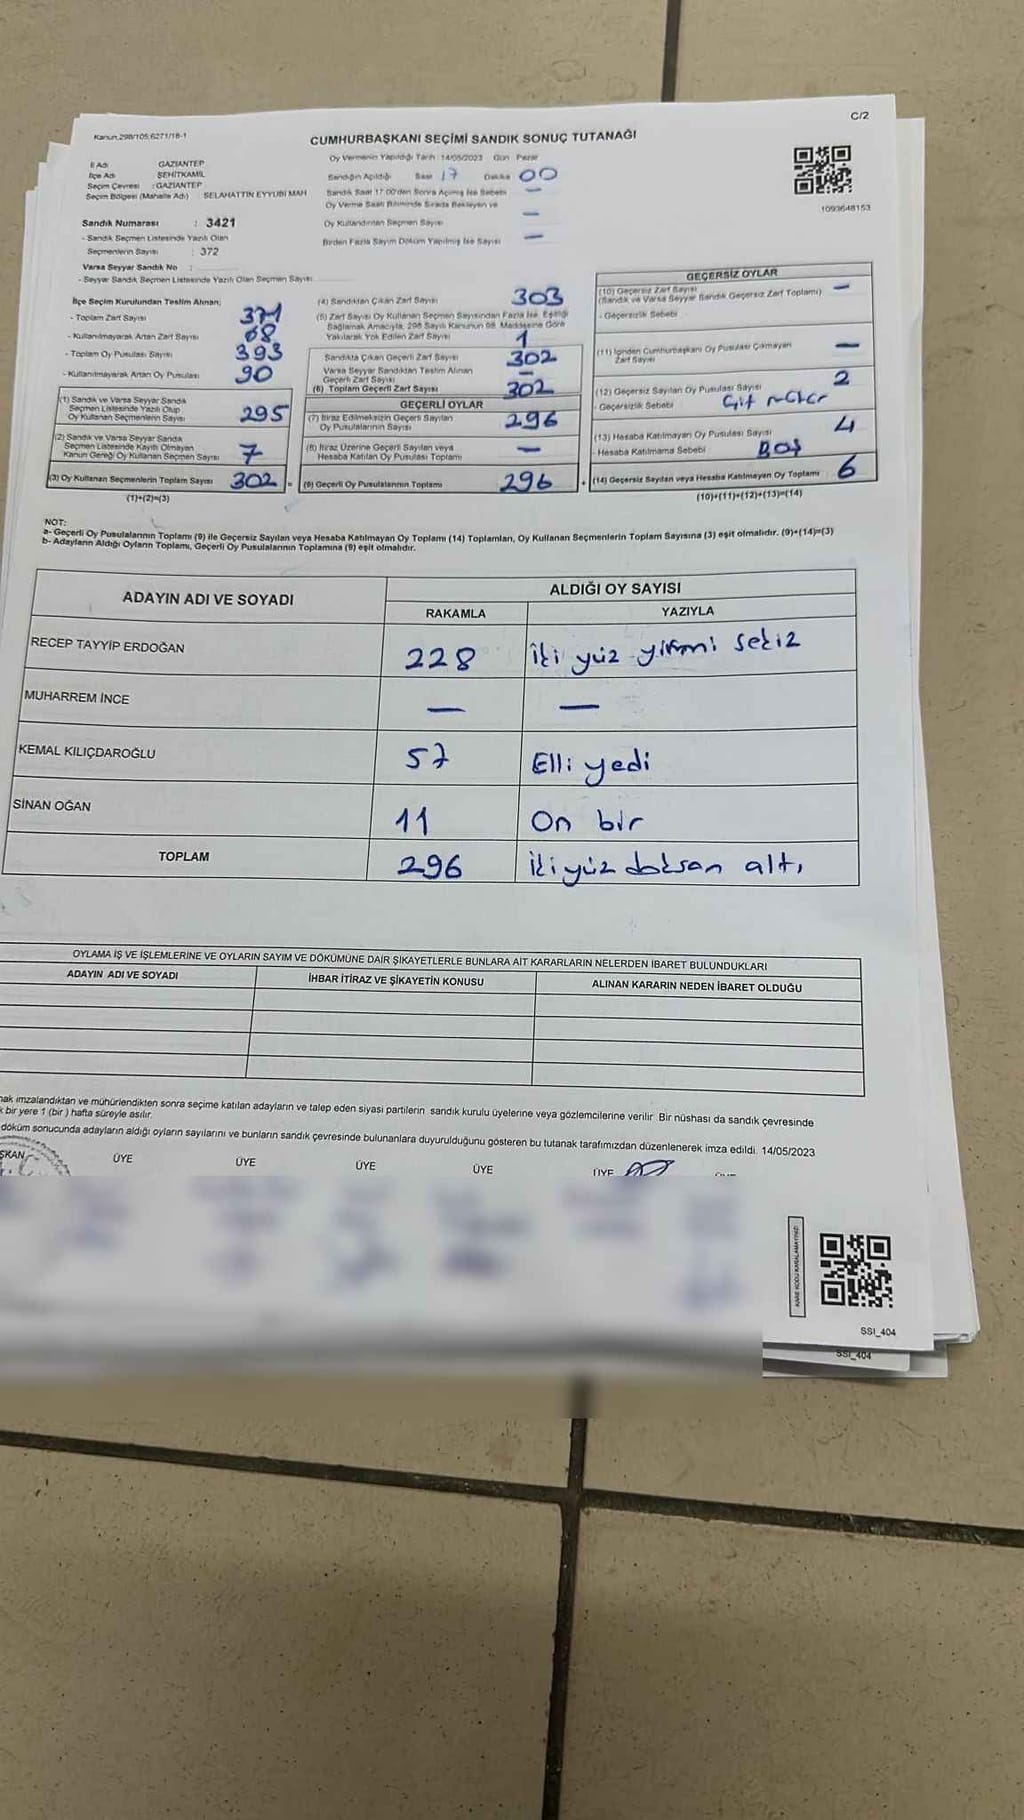 C/2
Kanun.298/105,6271/18-1
CUMHURBAŞKANI SEÇİMİ SANDIK SONUÇ TUTANAĞI
İl Adı GAZİANTEP
İlçe Adı ŞEHİTKAMİL
Seçim Çevresi : GAZİANTEP
Seçim Bölgesi (Mahalle Adı) SELAHATTİN EYYUBİ MAH
Sandık Numarası : 3421
- Sandık Seçmen Listesinde Yazılı Olan
Seçmenlerin Sayısı : 372
Varsa Seyyar Sandık No :
- Seyyar Sandık Seçmen Listesinde Yazılı Olan Seçmen Sayısı
Oy Vermenin Yapıldığı Tarih 14/05/2023 Gün Pazar
Sandığın Açıldığı Saat 17 Dakika 00
Sandık Saat 17:00'den Sonra Açılmış İse Sebebi —
Oy Verme Saati Bitiminde Sırada Bekleyen ve
Oy Kullandırılan Seçmen Sayısı —
Birden Fazla Sayım Döküm Yapılmış İse Sayısı —
1093648153
İlçe Seçim Kurulundan Teslim Alınan;
- Toplam Zarf Sayısı 371
- Kullanılmayarak Artan Zarf Sayısı 68
- Toplam Oy Pusulası Sayısı 393
- Kullanılmayarak Artan Oy Pusulası 90
(1) Sandık ve Varsa Seyyar Sandık
Seçmen Listesinde Yazılı Olup
Oy Kullanan Seçmenlerin Sayısı 295
(2) Sandık ve Varsa Seyyar Sandık
Seçmen Listesinde Kayıtlı Olmayan
Kanun Gereği Oy Kullanan Seçmen Sayısı 7
(3) Oy Kullanan Seçmenlerin Toplam Sayısı 302 =
(1)+(2)=(3)
(4) Sandıktan Çıkan Zarf Sayısı 303
(5) Zarf Sayısı Oy Kullanan Seçmen Sayısından Fazla İse, Eşitliği
Sağlamak Amacıyla, 298 Sayılı Kanunun 98. Maddesine Göre
Yakılarak Yok Edilen Zarf Sayısı 1
Sandıkta Çıkan Geçerli Zarf Sayısı 302
Varsa Seyyar Sandıktan Teslim Alınan
Geçerli Zarf Sayısı —
(6) Toplam Geçerli Zarf Sayısı 302
GEÇERLİ OYLAR
(7) İtiraz Edilmeksizin Geçerli Sayılan
Oy Pusulalarının Sayısı 296
(8) İtiraz Üzerine Geçerli Sayılan veya
Hesaba Katılan Oy Pusulası Toplamı —
(9) Geçerli Oy Pusulalarının Toplamı 296 +
GEÇERSİZ OYLAR
(10) Geçersiz Zarf Sayısı
(Sandık ve Varsa Seyyar Sandık Geçersiz Zarf Toplamı) —
- Geçersizlik Sebebi
(11) İçinden Cumhurbaşkanı Oy Pusulası Çıkmayan
Zarf Sayısı —
(12) Geçersiz Sayılan Oy Pusulası Sayısı 2
- Geçersizlik Sebebi Çift mühür
(13) Hesaba Katılmayan Oy Pusulası Sayısı 4
- Hesaba Katılmama Sebebi BOŞ
(14) Geçersiz Sayılan veya Hesaba Katılmayan Oy Toplamı 6
(10)+(11)+(12)+(13)=(14)
NOT:
a- Geçerli Oy Pusulalarının Toplamı (9) ile Geçersiz Sayılan veya Hesaba Katılmayan Oy Toplamı (14) Toplamları, Oy Kullanan Seçmenlerin Toplam Sayısına (3) eşit olmalıdır. (9)+(14)=(3)
b- Adayların Aldığı Oyların Toplamı, Geçerli Oy Pusulalarının Toplamına (9) eşit olmalıdır.
ADAYIN ADI VE SOYADI ALDIĞI OY SAYISI
RAKAMLA YAZIYLA
RECEP TAYYİP ERDOĞAN 228 iki yüz yirmi sekiz
MUHARREM İNCE — —
KEMAL KILIÇDAROĞLU 57 Elli yedi
SİNAN OĞAN 11 On bir
TOPLAM 296 iki yüz doksan altı
OYLAMA İŞ VE İŞLEMLERİNE VE OYLARIN SAYIM VE DÖKÜMÜNE DAİR ŞİKAYETLERLE BUNLARA AİT KARARLARIN NELERDEN İBARET BULUNDUKLARI
ADAYIN ADI VE SOYADI İHBAR İTİRAZ VE ŞİKAYETİN KONUSU ALINAN KARARIN NEDEN İBARET OLDUĞU
nak imzalandıktan ve mühürlendikten sonra seçime katılan adayların ve talep eden siyasi partilerin sandık kurulu üyelerine veya gözlemcilerine verilir. Bir nüshası da sandık çevresinde
k bir yere 1 (bir ) hafta süreyle asılır.
döküm sonucunda adayların aldığı oyların sayılarını ve bunların sandık çevresinde bulunanlara duyurulduğunu gösteren bu tutanak tarafımızdan düzenlenerek imza edildi. 14/05/2023
ŞKAN ÜYE ÜYE ÜYE ÜYE ÜYE
KARE KODU KARALAMAYINIZ!
SSI_404
SSI_404